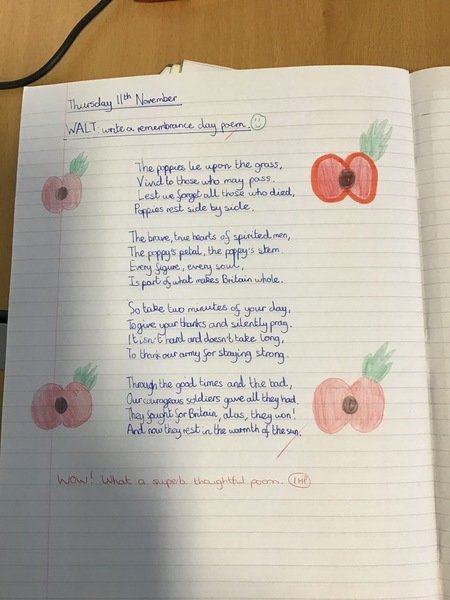 Thursday 11th November
WALT: write a remembrance day poem.
The poppies lie upon the grass,
Vivid to those who may pass.
Lest we forget all those who died,
Poppies rest side by side.
The brave, true hearts of spirited men,
The poppy's petal, the poppy's stem.
Every figure, every soul,
Is part of what makes Britain whole.
So take two minutes of your day,
To give your thanks and silently pray.
It isn't hard and doesn't take long,
To thank our army for staying strong.
Through the good times and the bad,
Our courageous soldiers gave all they had.
They fought for Britain, alas, they won!
And now they rest in the warmth of the sun.
WOW! What a superb thoughtful poem. 1HP